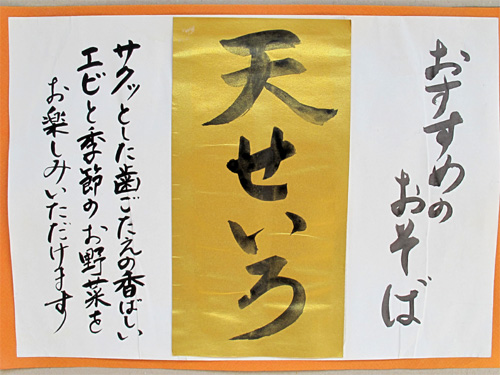 おすすめの
おそば
天せいろ
サクッとした歯ごたえの香ばしい
エビと季節のお野菜を
お楽しみいただけます